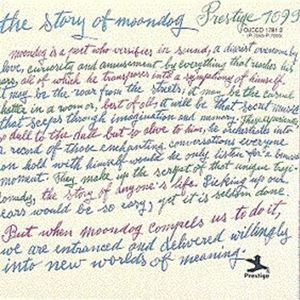 the story of moondog Prestige 7099
OJCCD 1741 2
moondog is a poet who versifies in sound, a diarist overcome by
love, curiosity and amusement by everything that reaches his
ears all of which he transposes into a symphony of himself.
it may be the roar from the streets; it may be the casual
in a room or, best of all, it will be that secret music
that seeps through imagination and memory. These experiences
so dull to the dull but so alive to him, he orchestrates into
a record of those enchanting conversations everyone
can hold with himself would he only listen for a
moment. They make up the script of that unique tragi-
comedy, the story of anyone's life. Picking up our
ears would be so easy; yet it is seldom done.
But when moondog compels us to do it,
we are entranced and delivered willingly
into new worlds of meaning.
Prestige